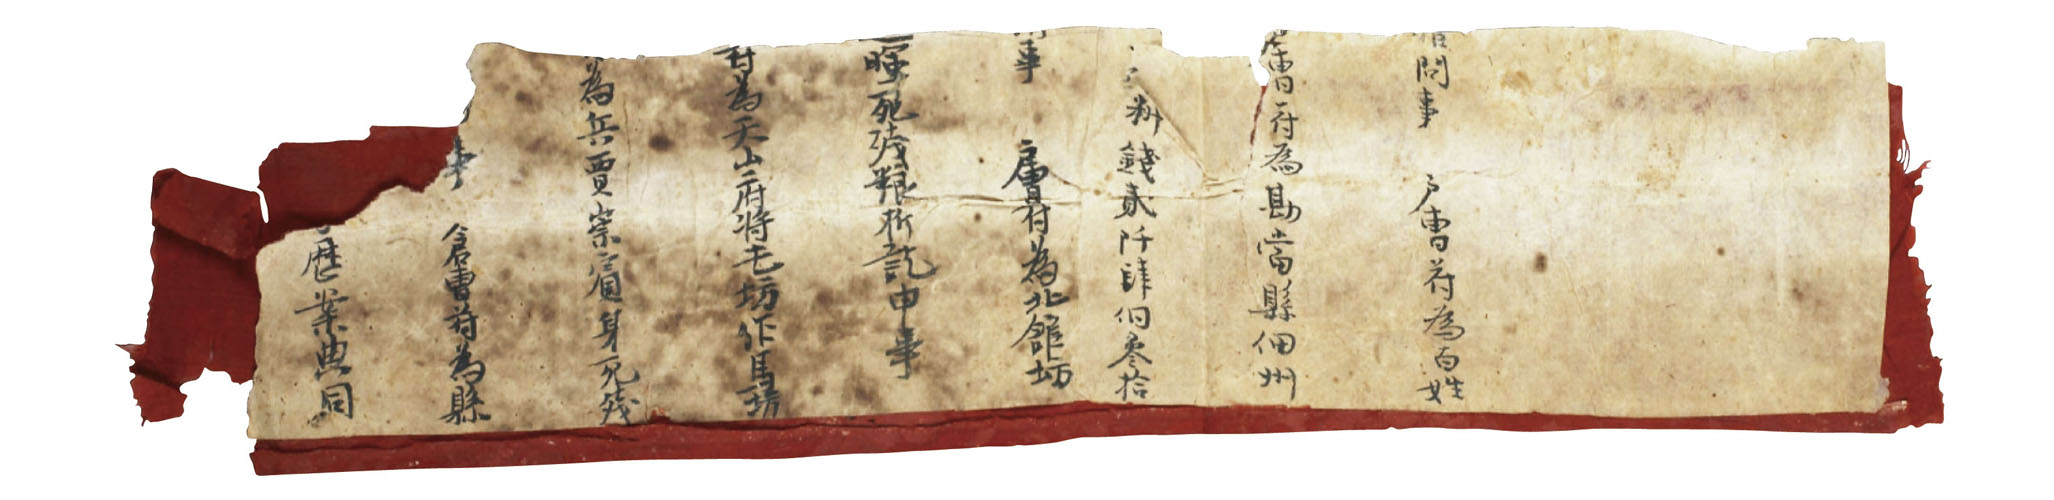 問事 户曹符為百姓
曹符為勘當縣佃州
料錢貳阡肆伯叁拾
事 倉曹符為北館坊
死殘粮折訖申事
符為天山府將毛坊作馬坊
為兵賈崇賓身死殘
事 倉曹符為縣
曆案典同